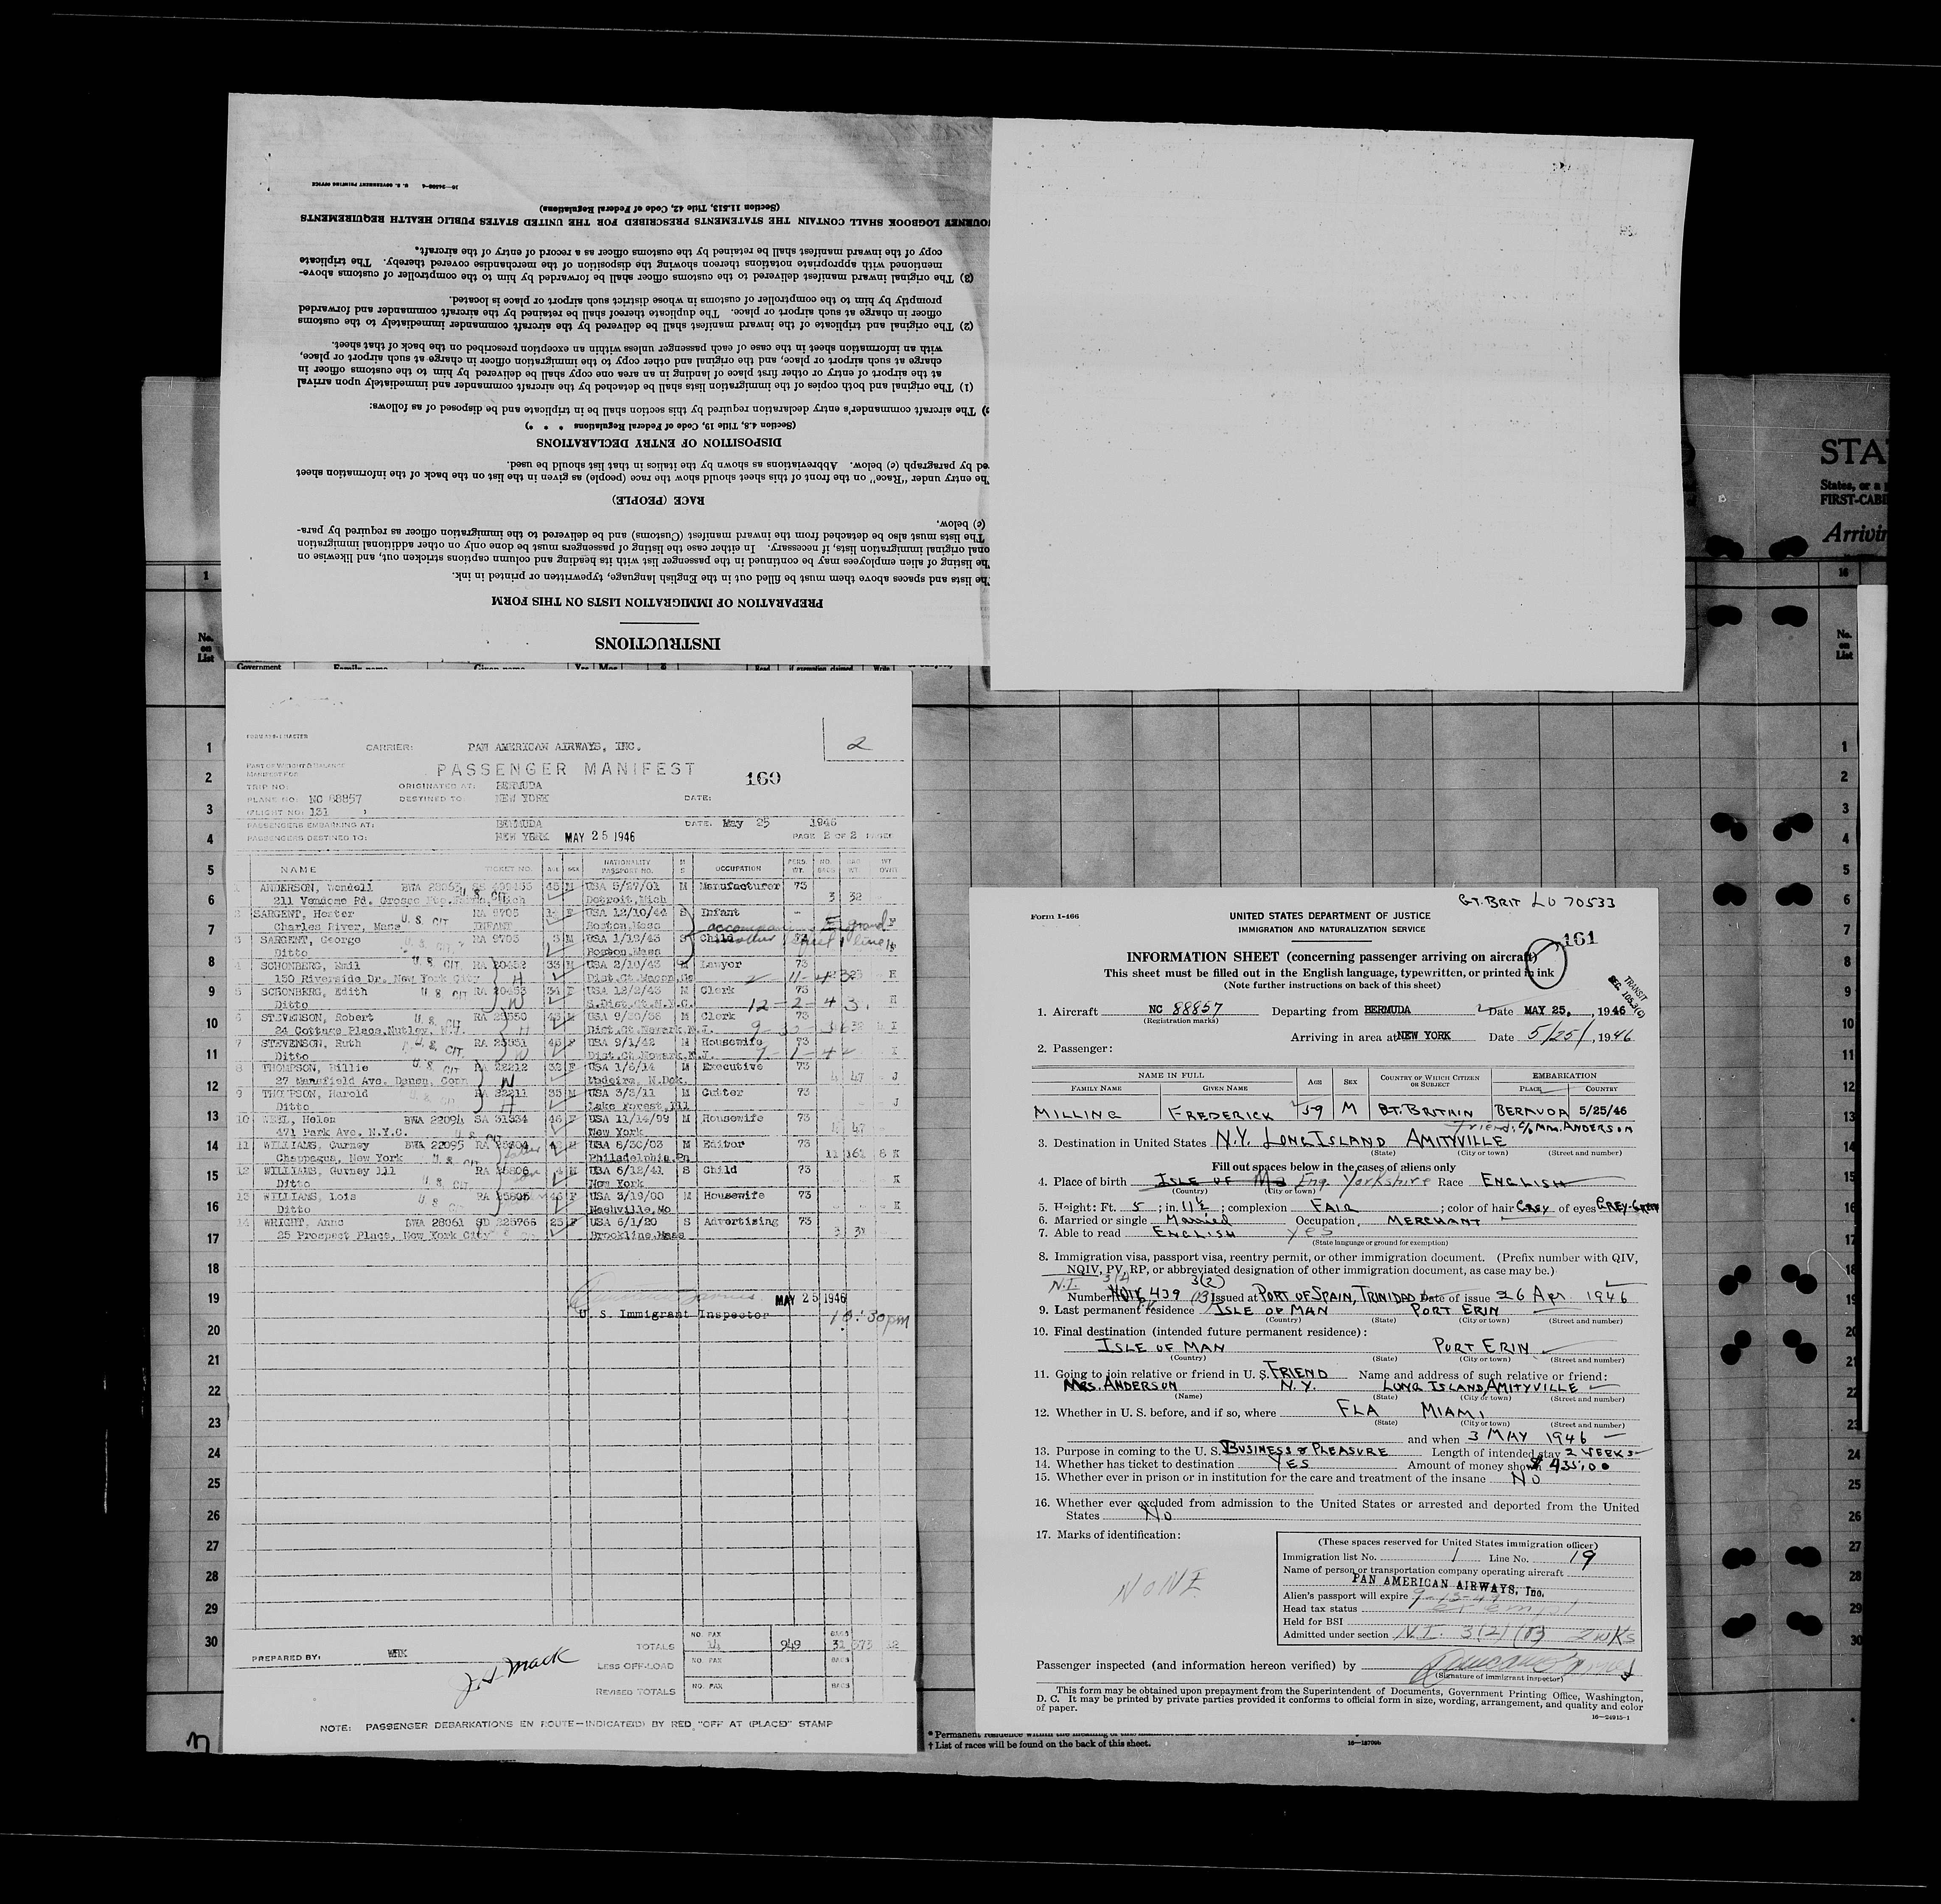 16—24906-4 U. S. GOVERNMENT PRINTING OFFICE
(Section 11.513, Title 42, Code of Federal Regulations)
LOGBOOK SHALL CONTAIN THE STATEMENTS PRESCRIBED FOR THE UNITED STATES PUBLIC HEALTH REQUIREMENTS
copy of the inward manifest shall be retained by the customs officer as a record of entry of the aircraft.
mentioned with appropriate notations thereon showing the disposition of the merchandise covered thereby. The triplicate
(3) The original inward manifest delivered to the customs officer shall be forwarded by him to the comptroller of customs above-
promptly by him to the comptroller of customs in whose district such airport or place is located.
officer in charge at such airport or place. The duplicate thereof shall be retained by the aircraft commander and forwarded
(2) The original and triplicate of the inward manifest shall be delivered by the aircraft commander immediately to the customs
with an information sheet in the case of each passenger unless within an exception prescribed on the back of that sheet.
charge at such airport or place, and the original and other copy to the immigration officer in charge at such airport or place,
at the airport of entry or other first place of landing in an area one copy shall be delivered by him to the customs officer in
(1) The original and both copies of the immigration lists shall be detached by the aircraft commander and immediately upon arrival
The aircraft commander's entry declaration required by this section shall be in triplicate and be disposed of as follows:
(Section 4.8, Title 19, Code of Federal Regulations * * *)
DISPOSITION OF ENTRY DECLARATIONS
by paragraph (c) below. Abbreviations as shown by the italics in that list should be used.
The entry under "Race" on the front of this sheet should show the race (people) as given in the list on the back of the information sheet
RACE (PEOPLE)
(c) below.
The lists must also be detached from the inward manifest (Customs) and be delivered to the immigration officer as required by para-
original immigration lists, if necessary. In either case the listing of passengers must be done only on other additional immigration
The listing of alien employees may be continued in the passenger list with its heading and column captions stricken out, and likewise on
The lists and spaces above them must be filled out in the English language, typewritten or printed in ink.
PREPARATION OF IMMIGRATION LISTS ON THIS FORM
INSTRUCTIONS
STA
States, or a
FIRST-CABI
Arrivin
No. on List
CARRIER: PAN AMERICAN AIRWAYS, INC. 2
PART OF WEIGHT & BALANCE
MANIFEST FOR
PASSENGER MANIFEST 160
TRIP NO: ORIGINATED AT: BERMUDA
PLANE NO: NC 88857 DESTINED TO: NEW YORK DATE:
FLIGHT NO: 131
PASSENGERS EMBARKING AT: BERMUDA DATE. May 25 1946
PASSENGERS DESTINED TO: NEW YORK MAY 25 1946 PAGE 2 OF 2 PAGES
NAME TICKET NO. AGE SEX NATIONALITY PASSPORT NO. M S OCCUPATION PERS. WT. NO. BAGS
1 ANDERSON, Wendell BWA 28063 45 M USA 5/27/01 M Manufacturer 73
211 Vendome Rd. Grosse Pte. Farms, Mich U. S. CIT. Detroit, Mich 3 32
2 SARGENT, Hester RA 9705 F USA 12/10/44 S Infant
Charles River, Mass U. S. CIT. INFANT Boston, Mass
3 SARGENT, George RA 9705 3 M USA 1/19/43 S Child
Ditto U. S. CIT. Boston, Mass
4 SCHONBERG, Emil U. S. CIT. RA 20452 33 M USA 2/10/43 M Lawyer 73
150 Riverside Dr. New York City H
5 SCHONBERG, Edith U. S. CIT. RA 20453 34 F USA 12/2/43 M Clerk 73
Ditto W S.Dist.Ct.N.Y.C. 12-2-43
6 STEVENSON, Robert U. S. CIT. M Clerk 73
24 Cottage Place, Nutley, N.J. H Dist.Ct.Newark N.J.
7 STEVENSON, Ruth U. S. CIT. F USA 9/1/42 M Housewife 73
Ditto W Dist.Ct.Newark N.J. 9-1-42
8 THOMPSON, Billie U. S. CIT. RA 22212 32 F USA 1/6/14 M Executive 73
27 Mansfield Ave. Darien, Conn W 47 J
9 THOMPSON, Harold RA 22211 35 M USA 3/3/11 M Cutter 73
Ditto H Lake Forest, Ill J
10 Helen BWA 22094 SA 31334 46 F USA 11/14/99 M Housewife 73
471 Park Ave. N.Y.C. New York 47
11 WILLIAMS, Gurney BWA 22095 M USA 6/30/03 M Editor 73
Chappaqua, New York U. S. CIT. Philadelphia, Pa 11 161
12 WILLIAMS, Gurney lll RA 25806 4 M USA 6/12/41 S Child 73
Ditto U. S. CIT. New York K
13 WILLIAMS, Lois RA 25805 46 F USA 3/19/00 M Housewife 73
Ditto U. S. Nashville, Mo K
14 WRIGHT, Anne BWA 28061 SD 225766 25 F USA 6/1/20 S Advertising 73
25 Prospect Place, New York City Brookline, Mass
MAY 25 1946
U. S. Immigrant Inspector
TOTALS NO. PAX 14 949 BAGS 31 573 12
PREPARED BY: J. Mack
LESS OFF-LOAD NO. PAX BAGS
REVISED TOTALS NO. PAX BAGS
NOTE: PASSENGER DEBARKATIONS EN ROUTE—INDICATED BY RED "OFF AT (PLACE)" STAMP
GT. BRIT LU 70533
Form I-466 UNITED STATES DEPARTMENT OF JUSTICE
IMMIGRATION AND NATURALIZATION SERVICE
161
INFORMATION SHEET (concerning passenger arriving on aircraft)
This sheet must be filled out in the English language, typewritten, or printed in ink
(Note further instructions on back of this sheet)
TRANSIT
SEC. 105.3(c)
1. Aircraft NC 88857 Departing from BERMUDA Date MAY 25, , 1946
(Registration marks)
Arriving in area at NEW YORK Date 5/25/, 1946
2. Passenger:
NAME IN FULL AGE SEX COUNTRY OF WHICH CITIZEN OR SUBJECT EMBARKATION
FAMILY NAME GIVEN NAME PLACE COUNTRY
MILLING FREDERICK 59 M GT. BRITAIN BERMUDA 5/25/46
Friend: C/o Mrs. ANDERSON
3. Destination in United States N.Y. LONG ISLAND AMITYVILLE
(State) (City or town) (Street and number)
Fill out spaces below in the cases of aliens only
4. Place of birth ISLE OF Ma Eng Yorkshire Race ENGLISH
(Country) (City or town)
5. Height: Ft. 5 ; in. 11½ ; complexion FAIR ; color of hair GREY of eyes GREY-GREEN
6. Married or single Married Occupation MERCHANT
7. Able to read ENGLISH yes
(State language or ground for exemption)
8. Immigration visa, passport visa, reentry permit, or other immigration document. (Prefix number with QIV,
NQIV, PV, RP, or abbreviated designation of other immigration document, as case may be.)
N.I. 3(2)
Number 439 Issued at PORT OF SPAIN, TRINIDAD Date of issue 26 Apr. 1946
9. Last permanent residence ISLE OF MAN PORT ERIN
(Country) (State) (City or town) (Street and number)
10. Final destination (intended future permanent residence):
ISLE OF MAN PORT ERIN
(Country) (State) (City or town) (Street and number)
11. Going to join relative or friend in U. S. FRIEND Name and address of such relative or friend:
MRS. ANDERSON N.Y. LONG ISLAND, AMITYVILLE
(Name) (State) (City or town) (Street and number)
12. Whether in U. S. before, and if so, where FLA MIAMI
(State) (City or town) (Street and number)
and when 3 MAY 1946
13. Purpose in coming to the U. S. BUSINESS & PLEASURE Length of intended stay 2 WEEKS
14. Whether has ticket to destination YES Amount of money shown $ 435.00
15. Whether ever in prison or in institution for the care and treatment of the insane NO
16. Whether ever excluded from admission to the United States or arrested and deported from the United
States No
17. Marks of identification:
NONE
(These spaces reserved for United States immigration officer)
Immigration list No. 1 Line No. 19
Name of person or transportation company operating aircraft
PAN AMERICAN AIRWAYS, Inc.
Alien's passport will expire
Head tax status exempt
Held for BSI
Admitted under section N.I. 3(2) (B) 2 WKS
Passenger inspected (and information hereon verified) by
(Signature of immigrant inspector)
This form may be obtained upon prepayment from the Superintendent of Documents, Government Printing Office, Washington,
D. C. It may be printed by private parties provided it conforms to official form in size, wording, arrangement, and quality and color
of paper.
16—24915-1
* Permanent residence within the meaning of
† List of races will be found on the back of this sheet.